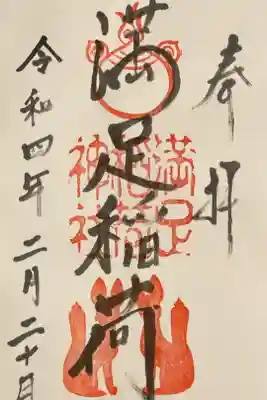 奉拝
満足稲荷
満足稲荷神社
令和四年二月二十日